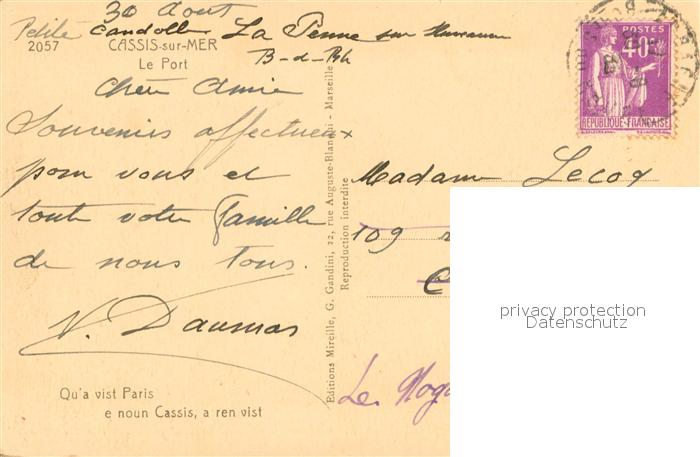 30 Aout
Petite Candolle La Penne sur Huveaune
B-d-Rh
2057 CASSIS-sur-MER
Le Port
Chère Amie
Souvenirs affectueux
pour vous et
toute votre famille
de nous tous.
V. Daumas
Qu'a vist Paris
e noun Cassis, a ren vist
Editions Mireille, G. Gandini, 22, rue Auguste-Blanqui - Marseille
Reproduction interdite
POSTES
40c
REPUBLIQUE-FRANÇAISE
Madame Lecoq
109
Le Noga
privacy protection
Datenschutz